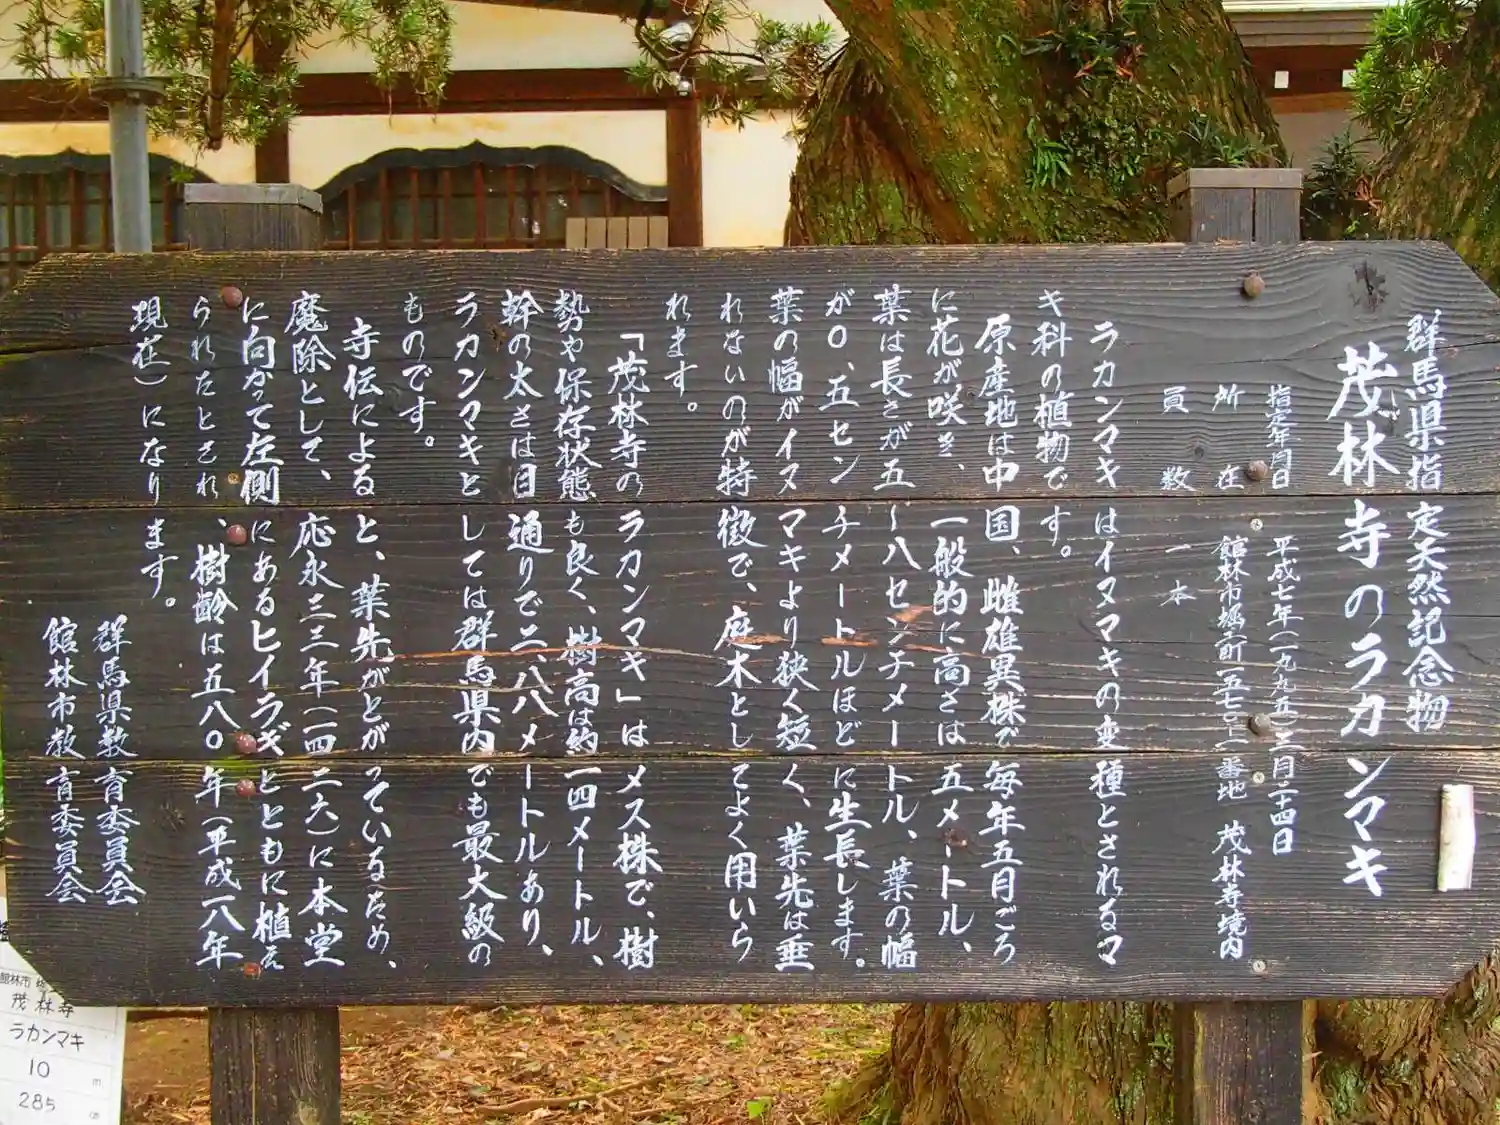 群馬県指定天然記念物
茂林寺のラカンマキ
指定年月日　平成七年(一九九五)三月二十四日
所在　館林市堀工町一五七〇―一番地　茂林寺境内
員数　一本
ラカンマキはイヌマキの変種とされるマ
キ科の植物です。
原産地は中国、雌雄異株で毎年五月ごろ
に花が咲き、一般的に高さは五メートル、
葉は長さが五〜八センチメートル、葉の幅
が〇、五センチメートルほどに生長します。
葉の幅がイヌマキより狭く短く、葉先は垂
れないのが特徴で、庭木としてよく用いら
れます。
「茂林寺のラカンマキ」はメス株で、樹
勢や保存状態も良く、樹高は約一四メートル、
幹の太さは目通りで二、八八メートルあり、
ラカンマキとしては群馬県内でも最大級の
ものです。
寺伝によると、葉先がとがっているため、
魔除として、応永三三年(一四二六)に本堂
に向かって左側にあるヒイラギとともに植え
られたとされ、樹齢は五八〇年(平成一八年
現在)になります。
群馬県教育委員会
館林市教育委員会
館林市
茂林寺
ラカンマキ
10 m
285 cm